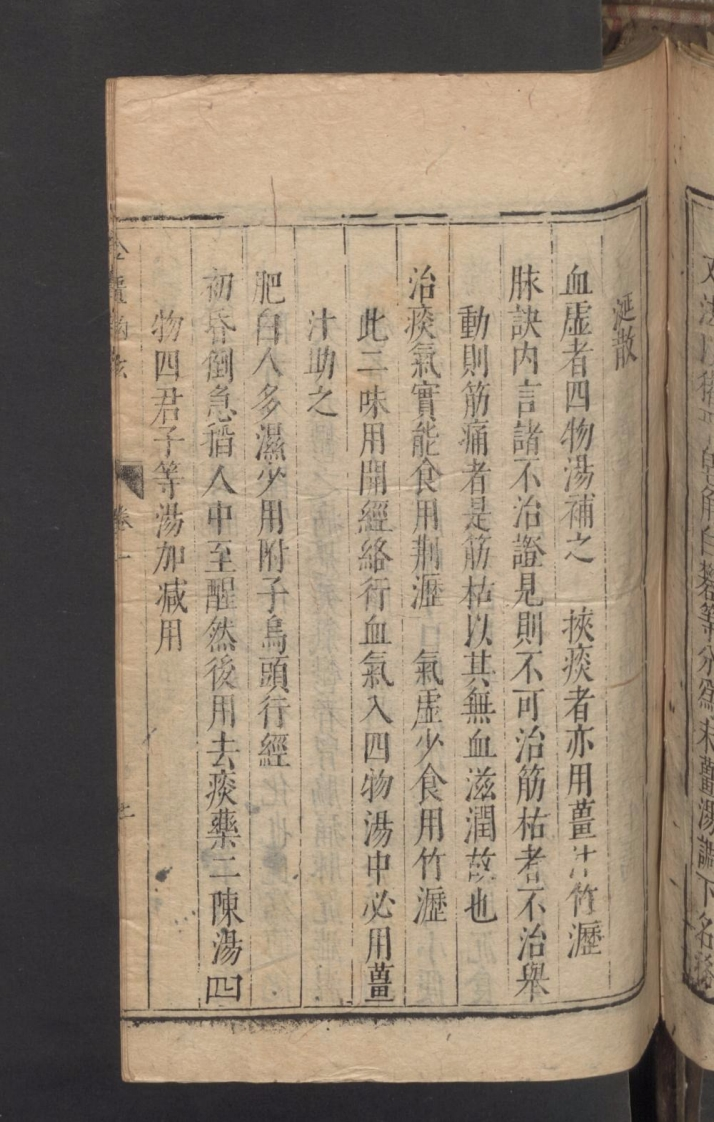 涎散
血虛者四物湯補之　挾痰者亦用薑汁竹瀝
脉訣內言諸不治證見則不可治筋枯者不治舉
動則筋痛者是筋枯以其無血滋潤故也
治痰氣實能食用荆瀝　氣虛少食用竹瀝
此二味用開經絡行血氣入四物湯中必用薑
汁助之
肥白人多濕少用附子烏頭行經
初昏倒急搯人中至醒然後用去痰藥二陳湯四
物四君子等湯加减用
卷一